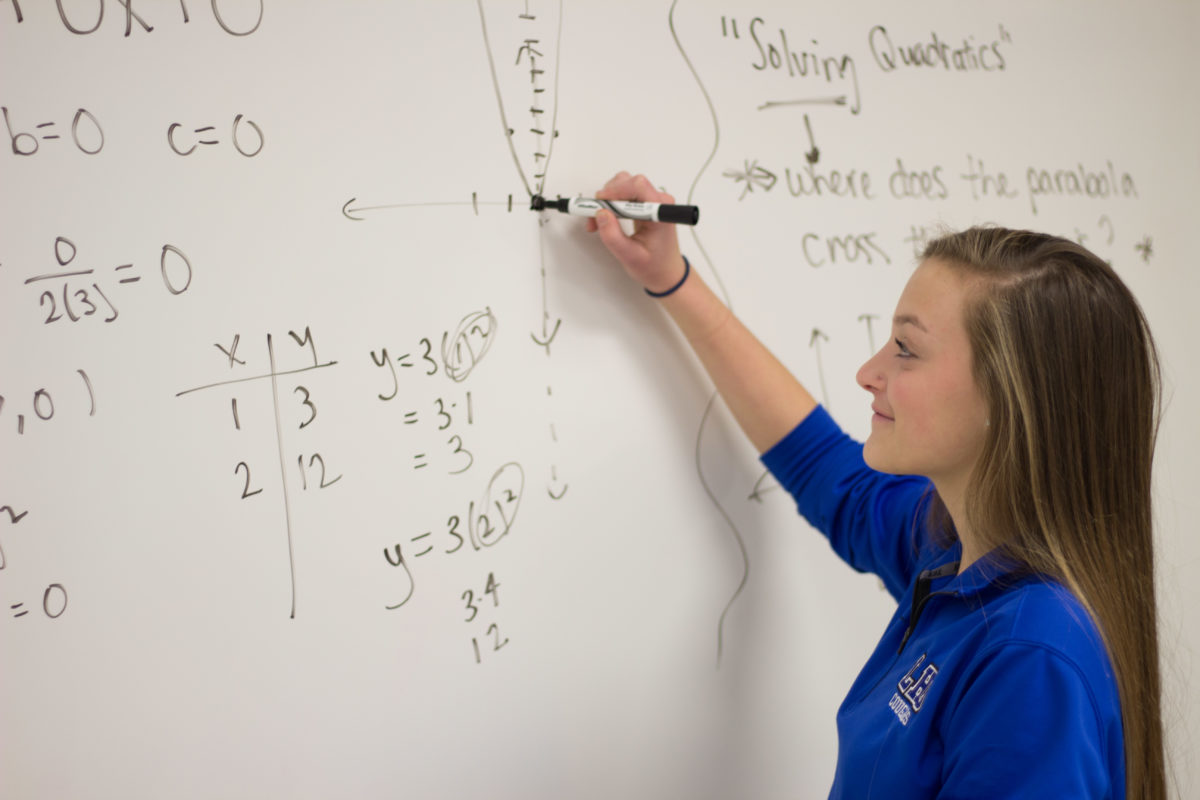 + 0x + 0
b=0 c=0
0
2(3) = 0
, 0 )
= 0
x y
1 3
2 12
y=3(1)²
= 3·1
= 3
y=3(2)²
3·4
12
"Solving Quadratics"
where does the parabola
cross